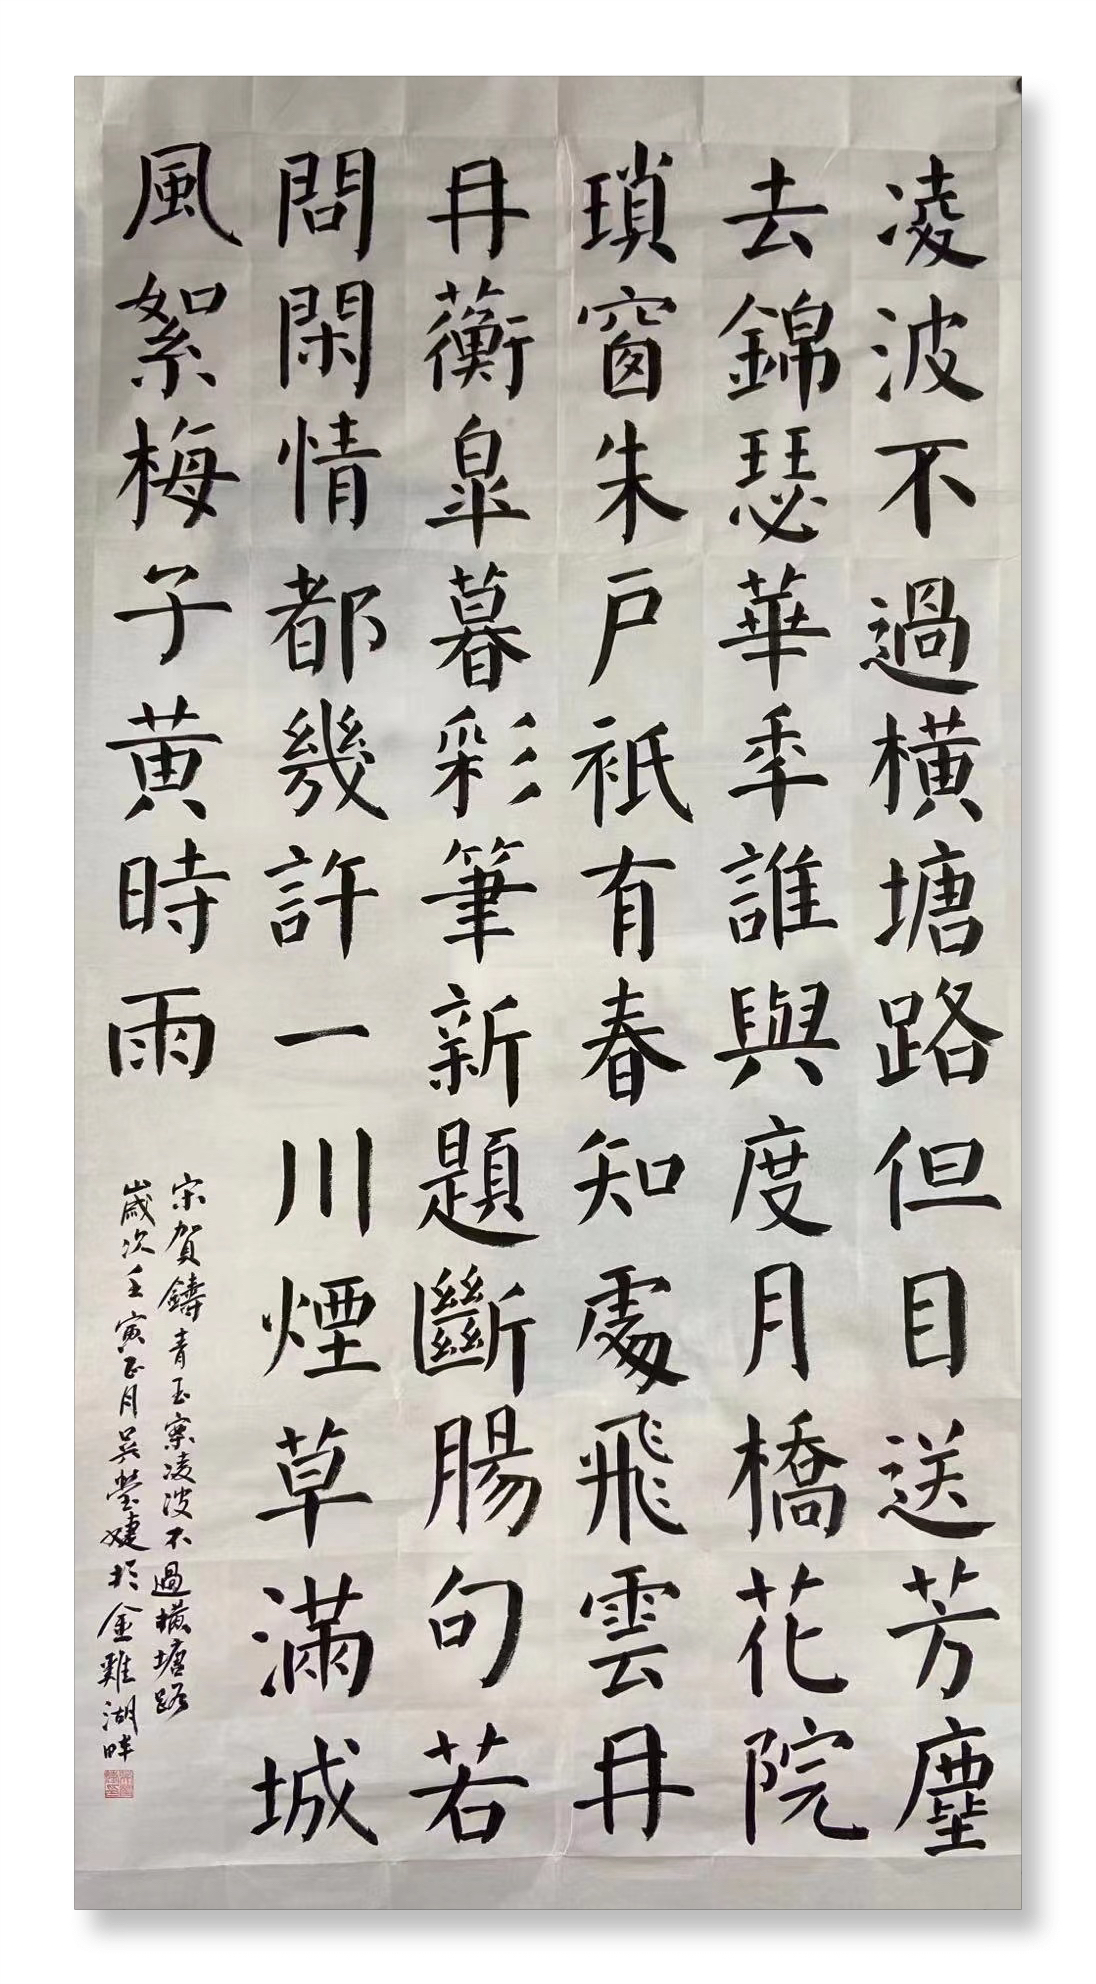 凌波不過橫塘路但目送芳塵
去錦瑟華季誰與度月橋花院
瑣窗朱戶祇有春知處飛雲冉
冉蘅皋暮彩筆新題斷腸句若
問閑情都幾許一川煙草滿城
風絮梅子黃時雨
宋賀鑄青玉案凌波不過橫塘路
歲次壬寅正月吳瑩婕於金雞湖畔